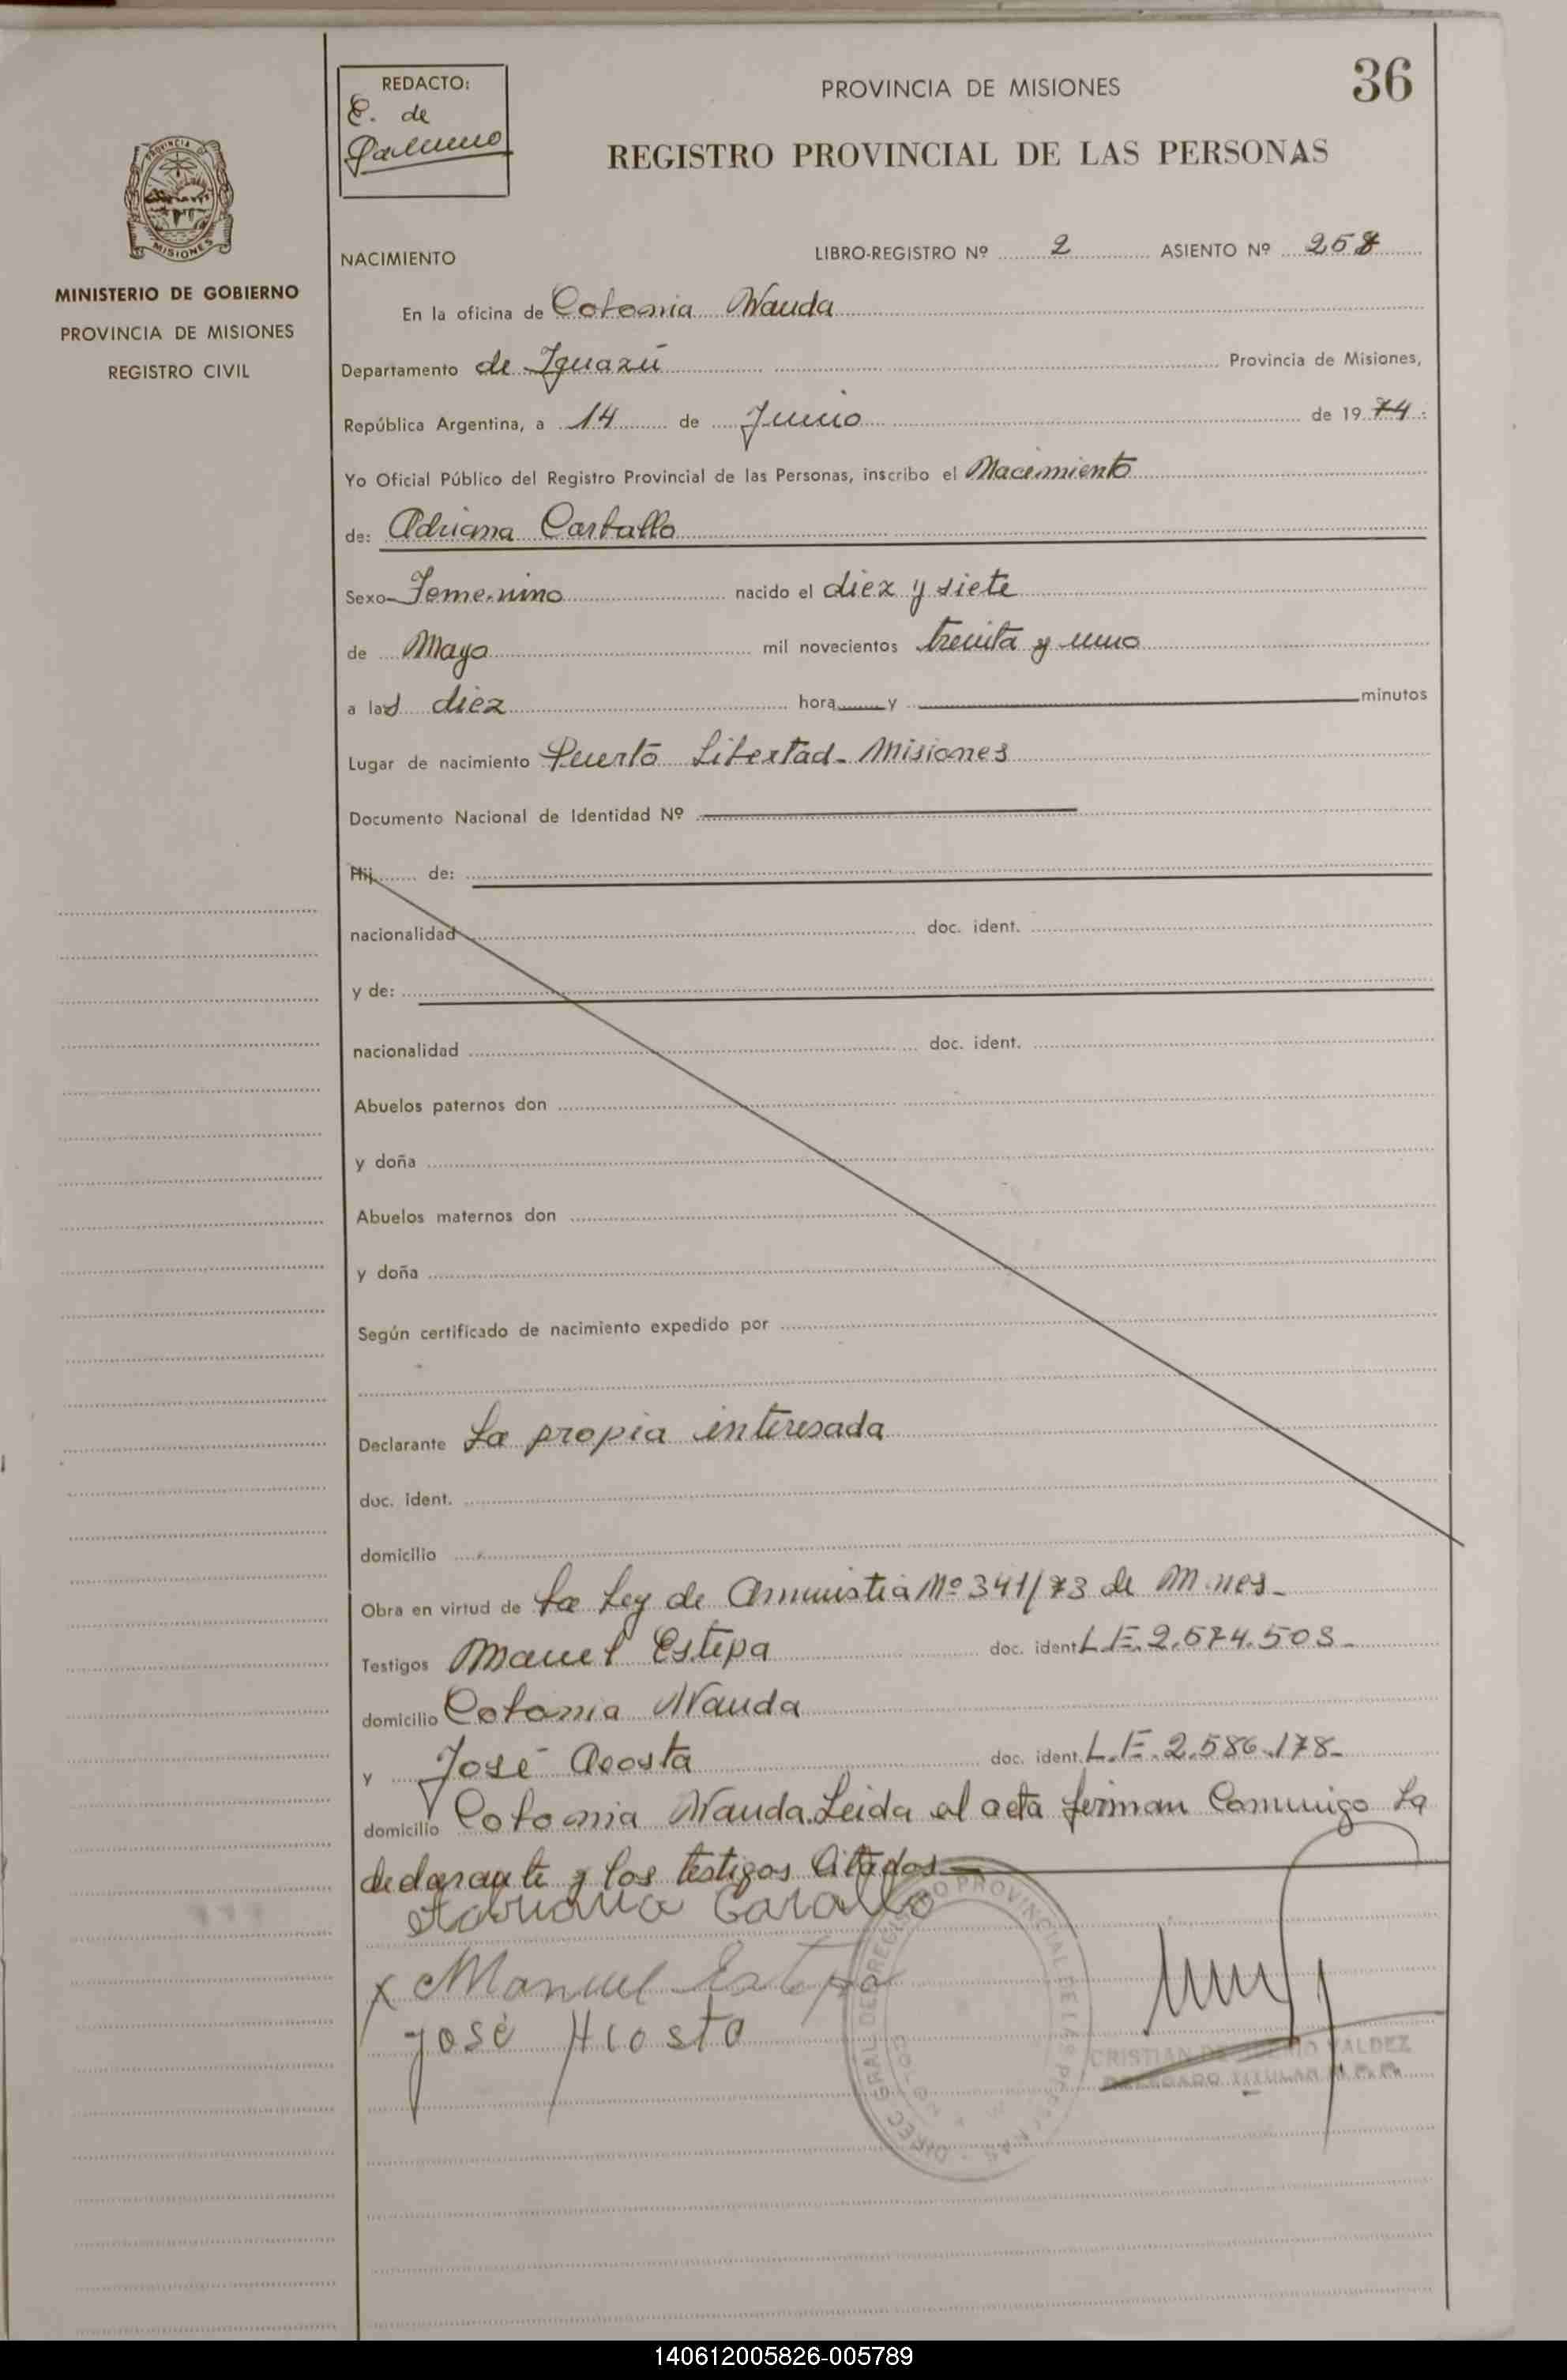 REDACTO:
E. de
PROVINCIA DE MISIONES
36
REGISTRO PROVINCIAL DE LAS PERSONAS
PROVINCIA
MISIONES
MINISTERIO DE GOBIERNO
PROVINCIA DE MISIONES
REGISTRO CIVIL
NACIMIENTO LIBRO-REGISTRO Nº 2 ASIENTO Nº
En la oficina de Colonia Wanda
Departamento de Iguazú Provincia de Misiones,
República Argentina, a 14 de Junio de 19 74.
Yo Oficial Público del Registro Provincial de las Personas, inscribo el Nacimiento
de: Adriana Carballo
Sexo Femenino nacido el diez y siete
de Mayo mil novecientos treinta y uno
a las diez hora y minutos
Lugar de nacimiento Puerto Libertad - Misiones
Documento Nacional de Identidad Nº
Hij de:
nacionalidad doc. ident.
y de:
nacionalidad doc. ident.
Abuelos paternos don
y doña
Abuelos maternos don
y doña
Según certificado de nacimiento expedido por
Declarante La propia interesada
doc. ident.
domicilio
Obra en virtud de La Ley de Amnistia Nº 341/73 de M.nes-
Testigos Manuel Estepa doc. ident. L.E. 2.574.503-
domicilio Colonia Wanda
y José Acosta doc. ident. L.E. 2.586.178-
domicilio Colonia Wanda. Leida el acta firman Conmigo La
declarante y los testigos Citados
Adriana Carallo
x Manuel Estepa
José Acosta
DIREC. GRAL. DEL REGISTRO PROVINCIAL DE LAS PERSONAS
CRISTIAN VALDEZ
DELEGADO TITULAR R.P.P.
140612005826-005789